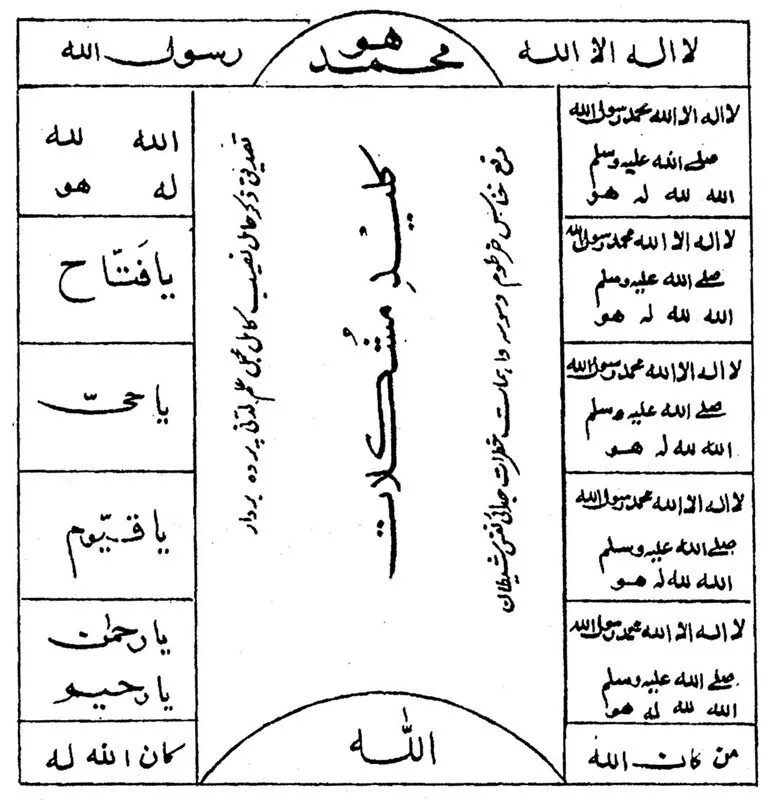 لا اله الا الله
هو
محمد
رسول الله
لا اله الا الله محمد رسول الله
صلے الله عليه وسلم
الله لله له هو
لا اله الا الله محمد رسول الله
صلے الله عليه وسلم
الله لله له هو
لا اله الا الله محمد رسول الله
صلے الله عليه وسلم
الله لله له هو
لا اله الا الله محمد رسول الله
صلے الله عليه وسلم
الله لله له هو
لا اله الا الله محمد رسول الله
صلے الله عليه وسلم
الله لله له هو
من كان الله
خناس خرطوم وسوسه واہمات خطرات نفس شیطان
کلیدِ مشُکلات
تصدیق ذکر حامل نصیب کامل علم لدنی پردہ بردار
الله
الله لله
له هو
يا فَتّاح
يا حىّ
يا قيّوم
يا رحمٰن
يا رحيم
كان الله له